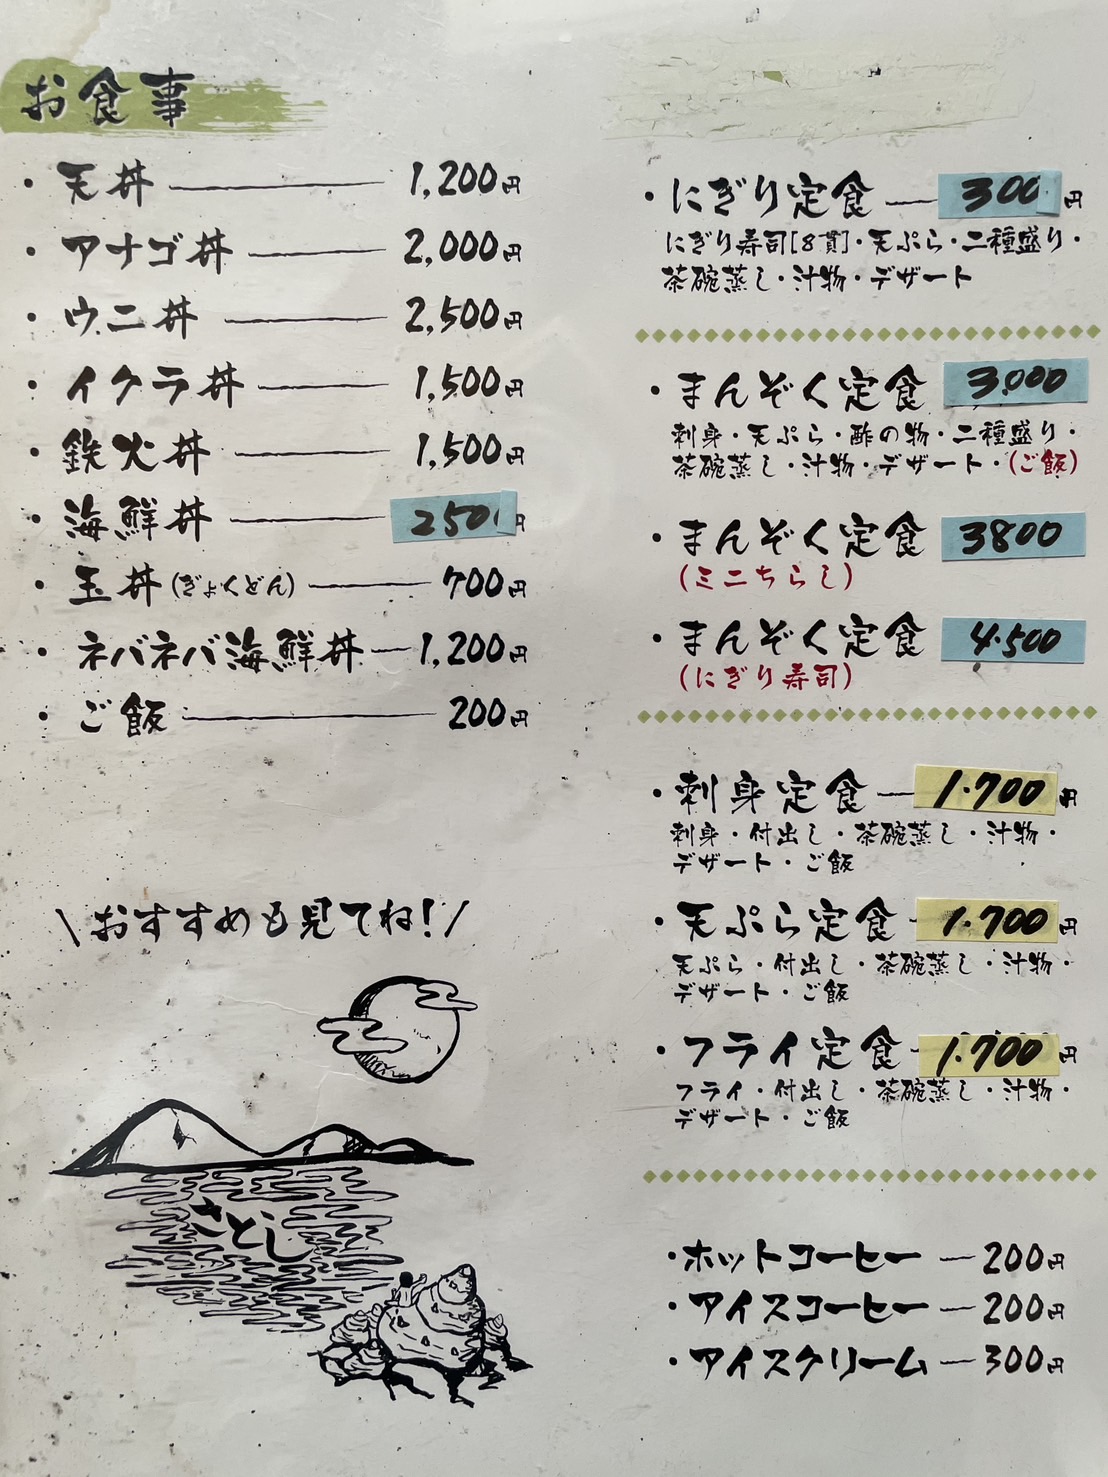 お食事
・天丼 1,200円
・アナゴ丼 2,000円
・ウニ丼 2,500円
・イクラ丼 1,500円
・鉄火丼 1,500円
・海鮮丼 250 円
・玉丼(ぎょくどん) 700円
・ネバネバ海鮮丼 1,200円
・ご飯 200円
\おすすめも見てね!/
さとし
・にぎり定食 300 円
にぎり寿司[8貫]・天ぷら・二種盛り・
茶碗蒸し・汁物・デザート
・まんぞく定食 3,000
刺身・天ぷら・酢の物・二種盛り・
茶碗蒸し・汁物・デザート・(ご飯)
・まんぞく定食 3800
(ミニちらし)
・まんぞく定食 4.500
(にぎり寿司)
・刺身定食 1.700円
刺身・付出し・茶碗蒸し・汁物・
デザート・ご飯
・天ぷら定食 1.700円
天ぷら・付出し・茶碗蒸し・汁物・
デザート・ご飯
・フライ定食 1.700円
フライ・付出し・茶碗蒸し・汁物・
デザート・ご飯
・ホットコーヒー 200円
・アイスコーヒー 200円
・アイスクリーム 300円